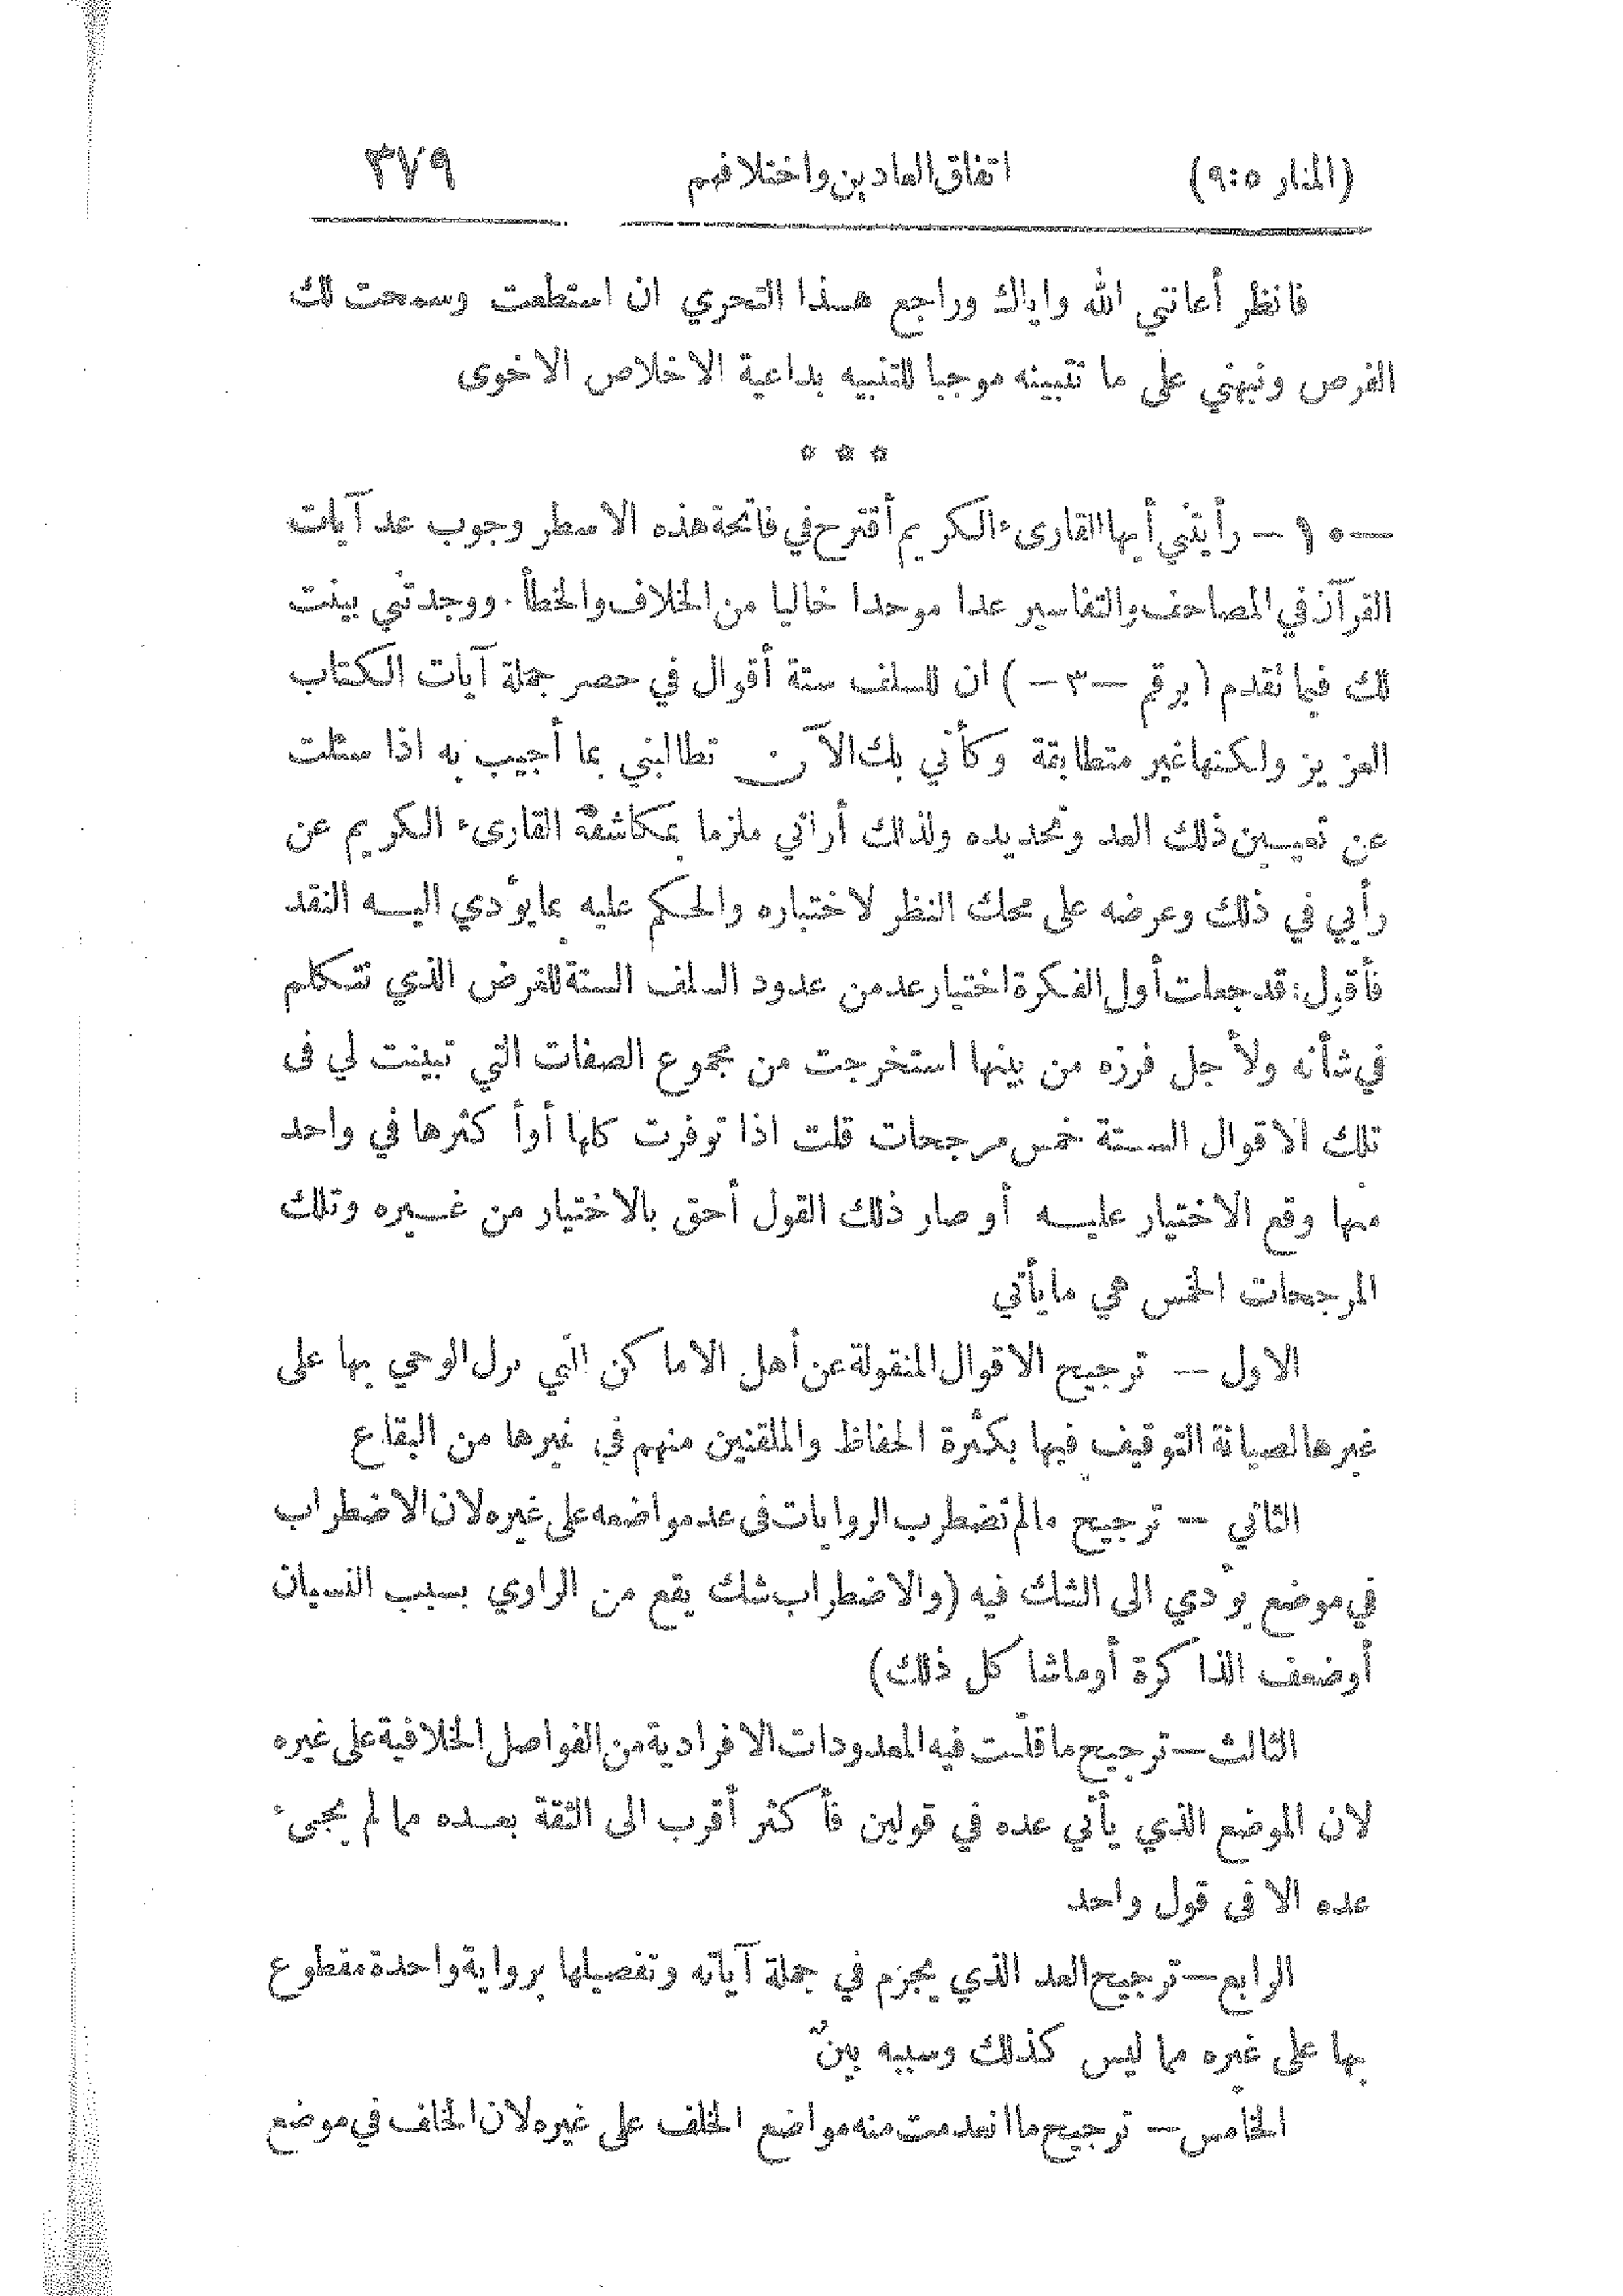 (المنار ٩:٥) اتفاق العادين واختلافهم ٣٧٩
فانظر أعانني الله واياك وراجع هذا التحري ان استطعت وسمحت لك
الفرص ونبهني على ما تتبينه موجبا للتنبيه بداعية الاخلاص الاخوى
* * *
— ١٠ — رأيتني أيها القارىء الكريم أقترح في فاتحة هذه الاسطر وجوب عد آيات
القرآن في المصاحف والتفاسير عدا موحدا خاليا من الخلاف والخطأ. ووجدتني بينت
لك فيما تقدم (برقم — ٣ —) ان للسلف ستة أقوال في حصر جملة آيات الكتاب
العزيز ولكنها غير متطابقة وكأني بك الآن تطالبني بما أجيب به اذا سئلت
عن تعيين ذلك العد وتحديده ولذلك أراني ملزما بمكاشفة القارىء الكريم عن
رأيي في ذلك وعرضه على محك النظر لاختباره والحكم عليه بما يؤدي اليه النقد
فأقول: قد جعلت أول الفكرة اختيار عد من عدود السلف الستة للغرض الذي نتكلم
في شأنه ولأجل فرزه من بينها استخرجت من مجموع الصفات التي تبينت لي فى
تلك الاقوال الستة خمس مرجحات قلت اذا توفرت كلها أو أكثرها في واحد
منها وقع الاختيار عليه أو صار ذلك القول أحق بالاختيار من غيره وتلك
المرجحات الخمس هي ما يأتي
الاول — ترجيح الاقوال المنقولة عن أهل الاماكن التي نزل الوحي بها على
غيرها لصيانة التوقيف فيها بكثرة الحفاظ والملقنين منهم في غيرها من البقاع
الثاني — ترجيح مالم تضطرب الروايات فى عد مواضعه على غيره لان الاضطراب
في موضع يؤدي الى الشك فيه (والاضطراب شك يقع من الراوي بسبب النسيان
أو ضعف الذاكرة أو ماشا كل ذلك)
الثالث — ترجيح ما قلّت فيه المعدودات الافرادية من الفواصل الخلافية على غيره
لان الموضع الذي يأتي عده في قولين فأكثر أقرب الى الثقة بعده مما لم يجىء
عده الا فى قول واحد
الرابع — ترجيح العد الذي يجزم في جملة آياته وتفصيلها برواية واحدة مقطوع
بها على غيره مما ليس كذلك وسببه بينٌ
الخامس — ترجيح ما انعدمت منه مواضع الخلف على غيره لان الخلف في موضع